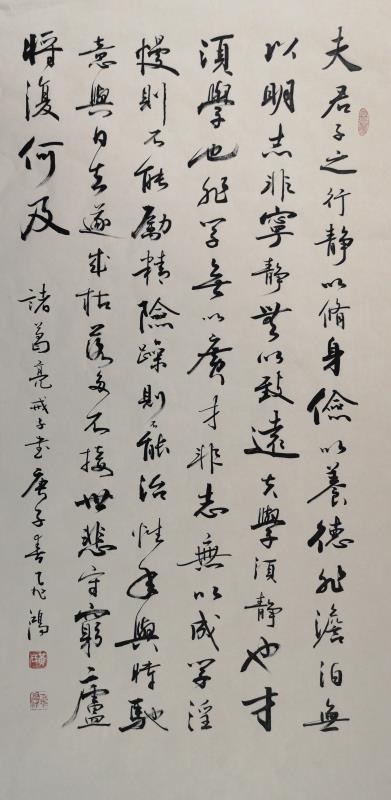 夫君子之行静以脩身儉以養德非澹泊無
以明志非寧静無以致遠夫學須静也才
須學也非学無以廣才非志無以成学淫
慢則不能勵精險躁則不能治性年與時馳
意與日去遂成枯落多不接世悲守窮廬
將復何及
諸葛亮戒子書庚子春鴻